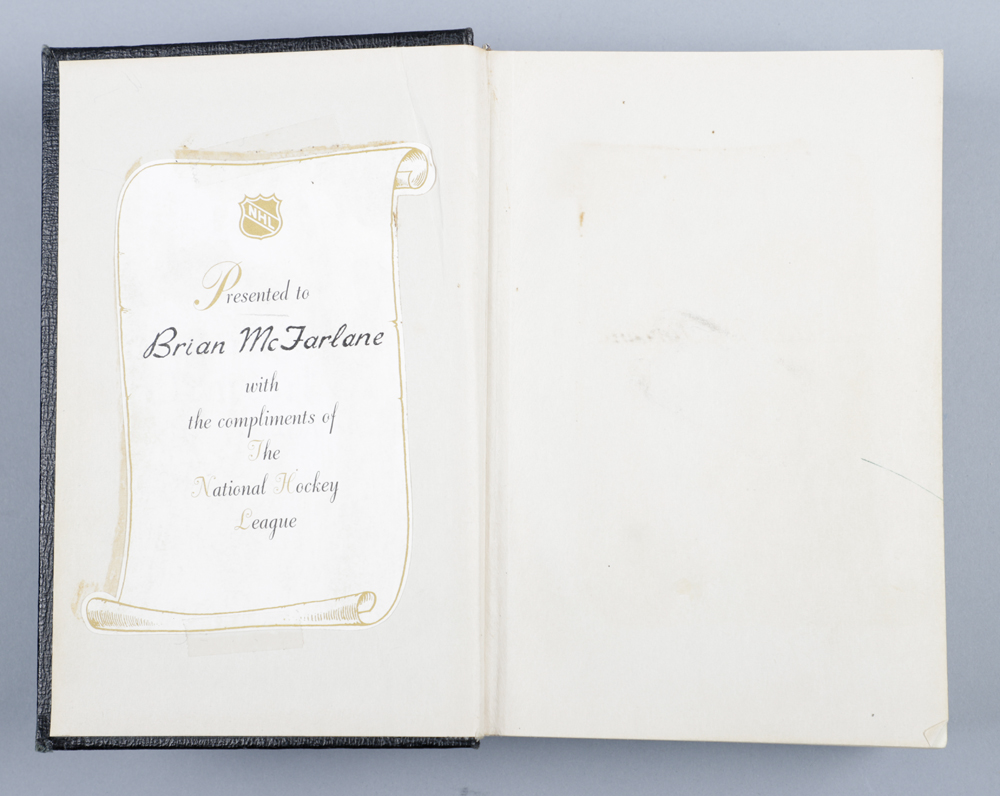 NHL
Presented to
Brian McFarlane
with
the compliments of
The
National Hockey
League